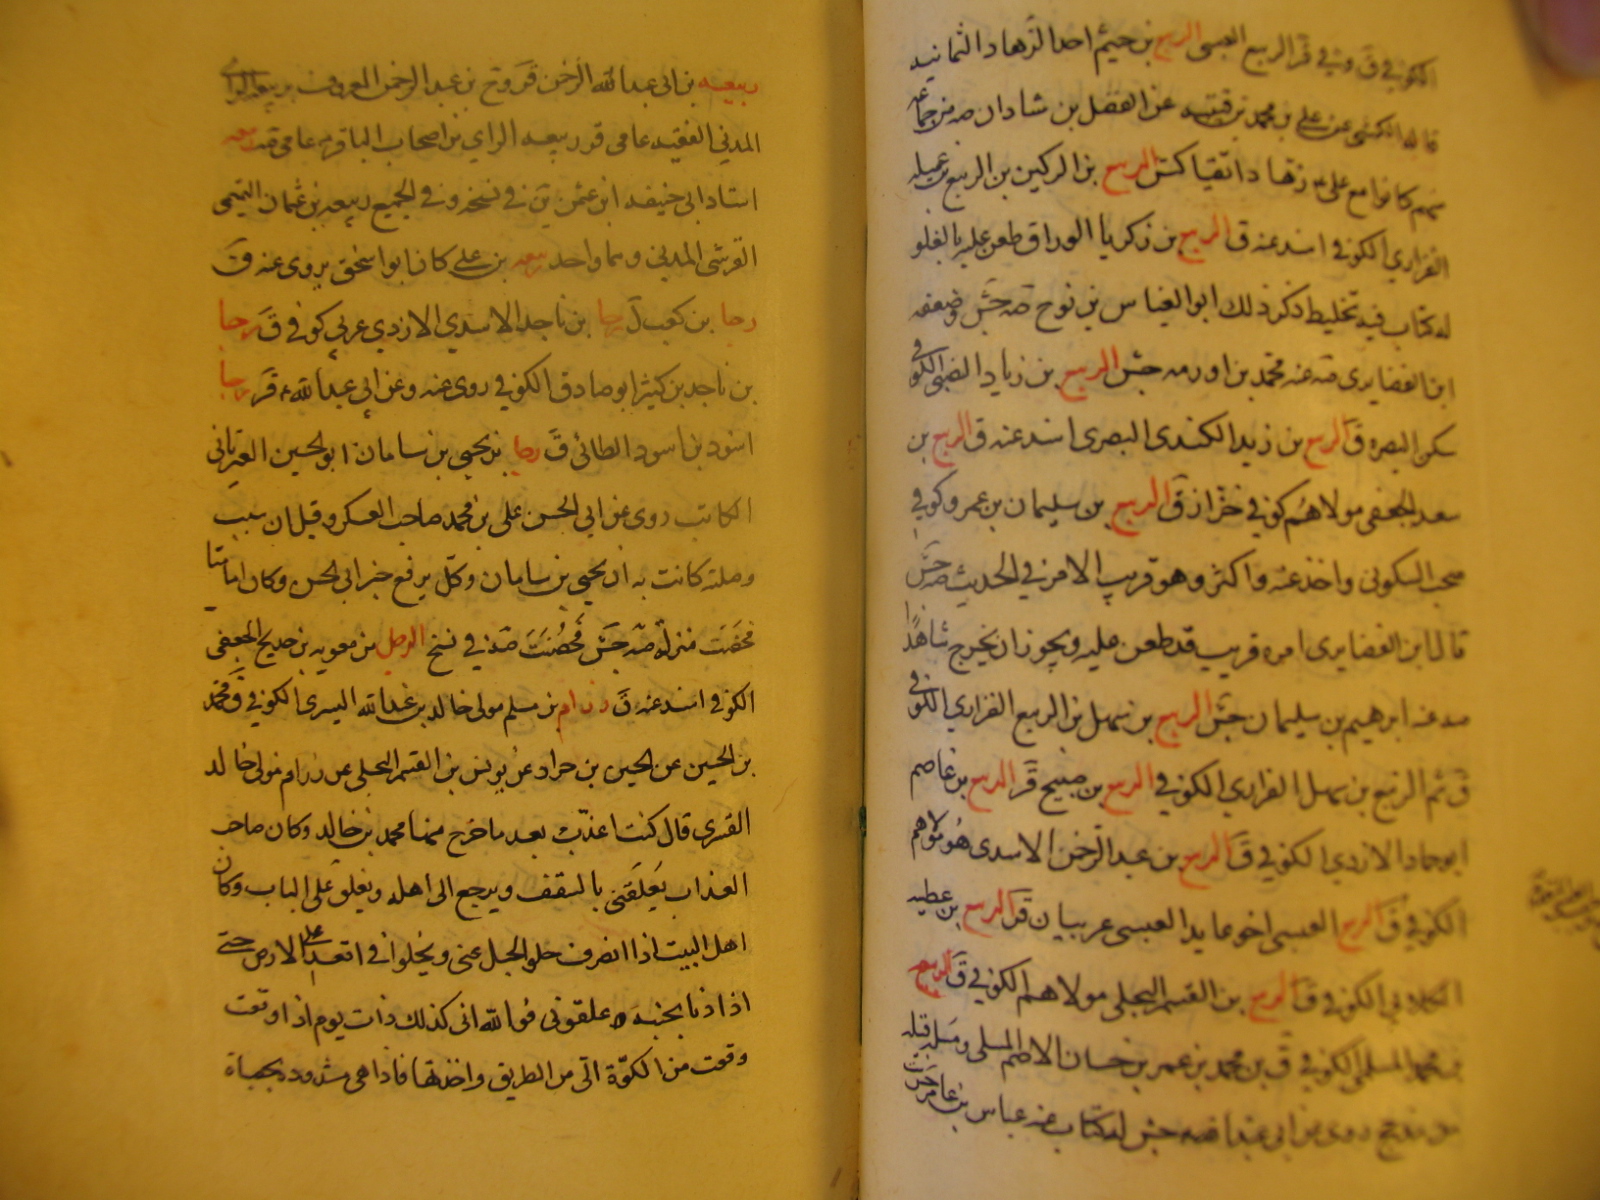 الكوفي ق وفي قر الربيع العبسى الربيع بن خيثم احد الزهاد الثمانيه
قاله الكشى عن على و محمد بن قتيبه عن الفضل بن شاذان صه من جماعه
منهم كانوا مع على ع زهادا اتقيا كش الربيع بن الركين بن الربيع بن عميله
الفزاري الكوفي اسند عنه ق الربيع بن زكريا الوراق طعن عليه بالغلو
له كتاب فيه تخليط ذكر ذلك ابو العباس بن نوح صه جش وضعفه
ابن الغضايرى صه عنه محمد بن اورمه جش الربيع بن زياد الضبى الكوفي
سكن البصره ق الربيع بن زيد الكندى البصرى اسند عنه ق الربيع بن
سعد الجعفى مولاهم كوفي خزاز ق الربيع بن سليمان بن عمرو كوفي
صحب السكونى واخذ عنه واكثر وهو قريب الامر في الحديث صه جش
قال ابن الغضايرى امره قريب قد طعن عليه ويجوز ان يخرج شاهدا
صه عنه ابرهيم بن سليمان جش الربيع بن سهل بن الربيع الفزاري الكوفي
ق ثم الربيع بن سهل الفزاري الكوفي الربيع بن صبيح قر الربيع بن عاصم
ابو حماد الازدي الكوفي ق الربيع بن عبد الرحمن الاسدى مولاهم
الكوفي ق الربيع العبسى اخو عايد العبسى عربيان قر الربيع بن عطيه
الكلابي الكوفي ق الربيع بن القسم البجلى مولاهم الكوفي ق الربيع
بن محمد المسلمي الكوفي ق بن محمد بن عمر بن حسان الاصم المسلى ومسليه قبله
من مذحج روى عن ابى عبد الله صه جش له كتاب عنه عباس بن عامر جش
ربيعه بن ابى عبد الله الرحمن فروخ بن عبد الرحمن المعروف بربيعه الراى
المدنى الفقيه عامى قر ربيعه الراي من اصحاب الباقر ع عامى ربيعه
استاد ابى حنيفه ابن عثمن ين في نسخه وفي الجميع ربيعه بن عثمان التيمى
القرشى المدنى وهما واحد ربيعه بن على كان ابو اسحق يروى عنه ق
رجا بن كعب رجا بن ناجد الاسدي الازدي عربي كوفي ق رجا
بن ناجد بن كثير ابو صادق الكوفي روى عنه وعن ابي عبد الله ع قر رجا
اسود بن اسود الطائى ق رجا بن يحيى بن سامان ابو الحسين العبرتاني
الكاتب روى عن ابي الحسن على بن محمد صاحب العسكر وقيل ان سبب
وصلته كانت به ان يحيى بن سامان وكل برفع خبر ابى الحسن وكان اماميا
فحضت منزلة صه جش فحضنت صه في نسخ الرحيل بن معويه بن حديج الجعفى
الكوفي اسند عنه ق رزام بن مسلم مولى خالد بن عبد الله اليسرى الكوفي ق محمد
بن الحسين عن الحسن بن خرزاد عن يونس بن القسم البجلى عن رزام مولى خالد
القسرى قال كنت اعذب بعد ما خرج منها محمد بن خالد وكان صاحب
العذاب يعلقنى بالسقف ويرجع الى اهله ويغلق على الباب وكان
اهل البيت اذا انصرف حلوا الحبل عنى ويخلوا في اقعد على الارض حتى
اذا دنا بجنبه علقونى فوالله انى كذلك ذات يوم اذا وقعت
وقعت من الكوة الى من الطريق واخذتها فاذا هى مشدوده بحصاة